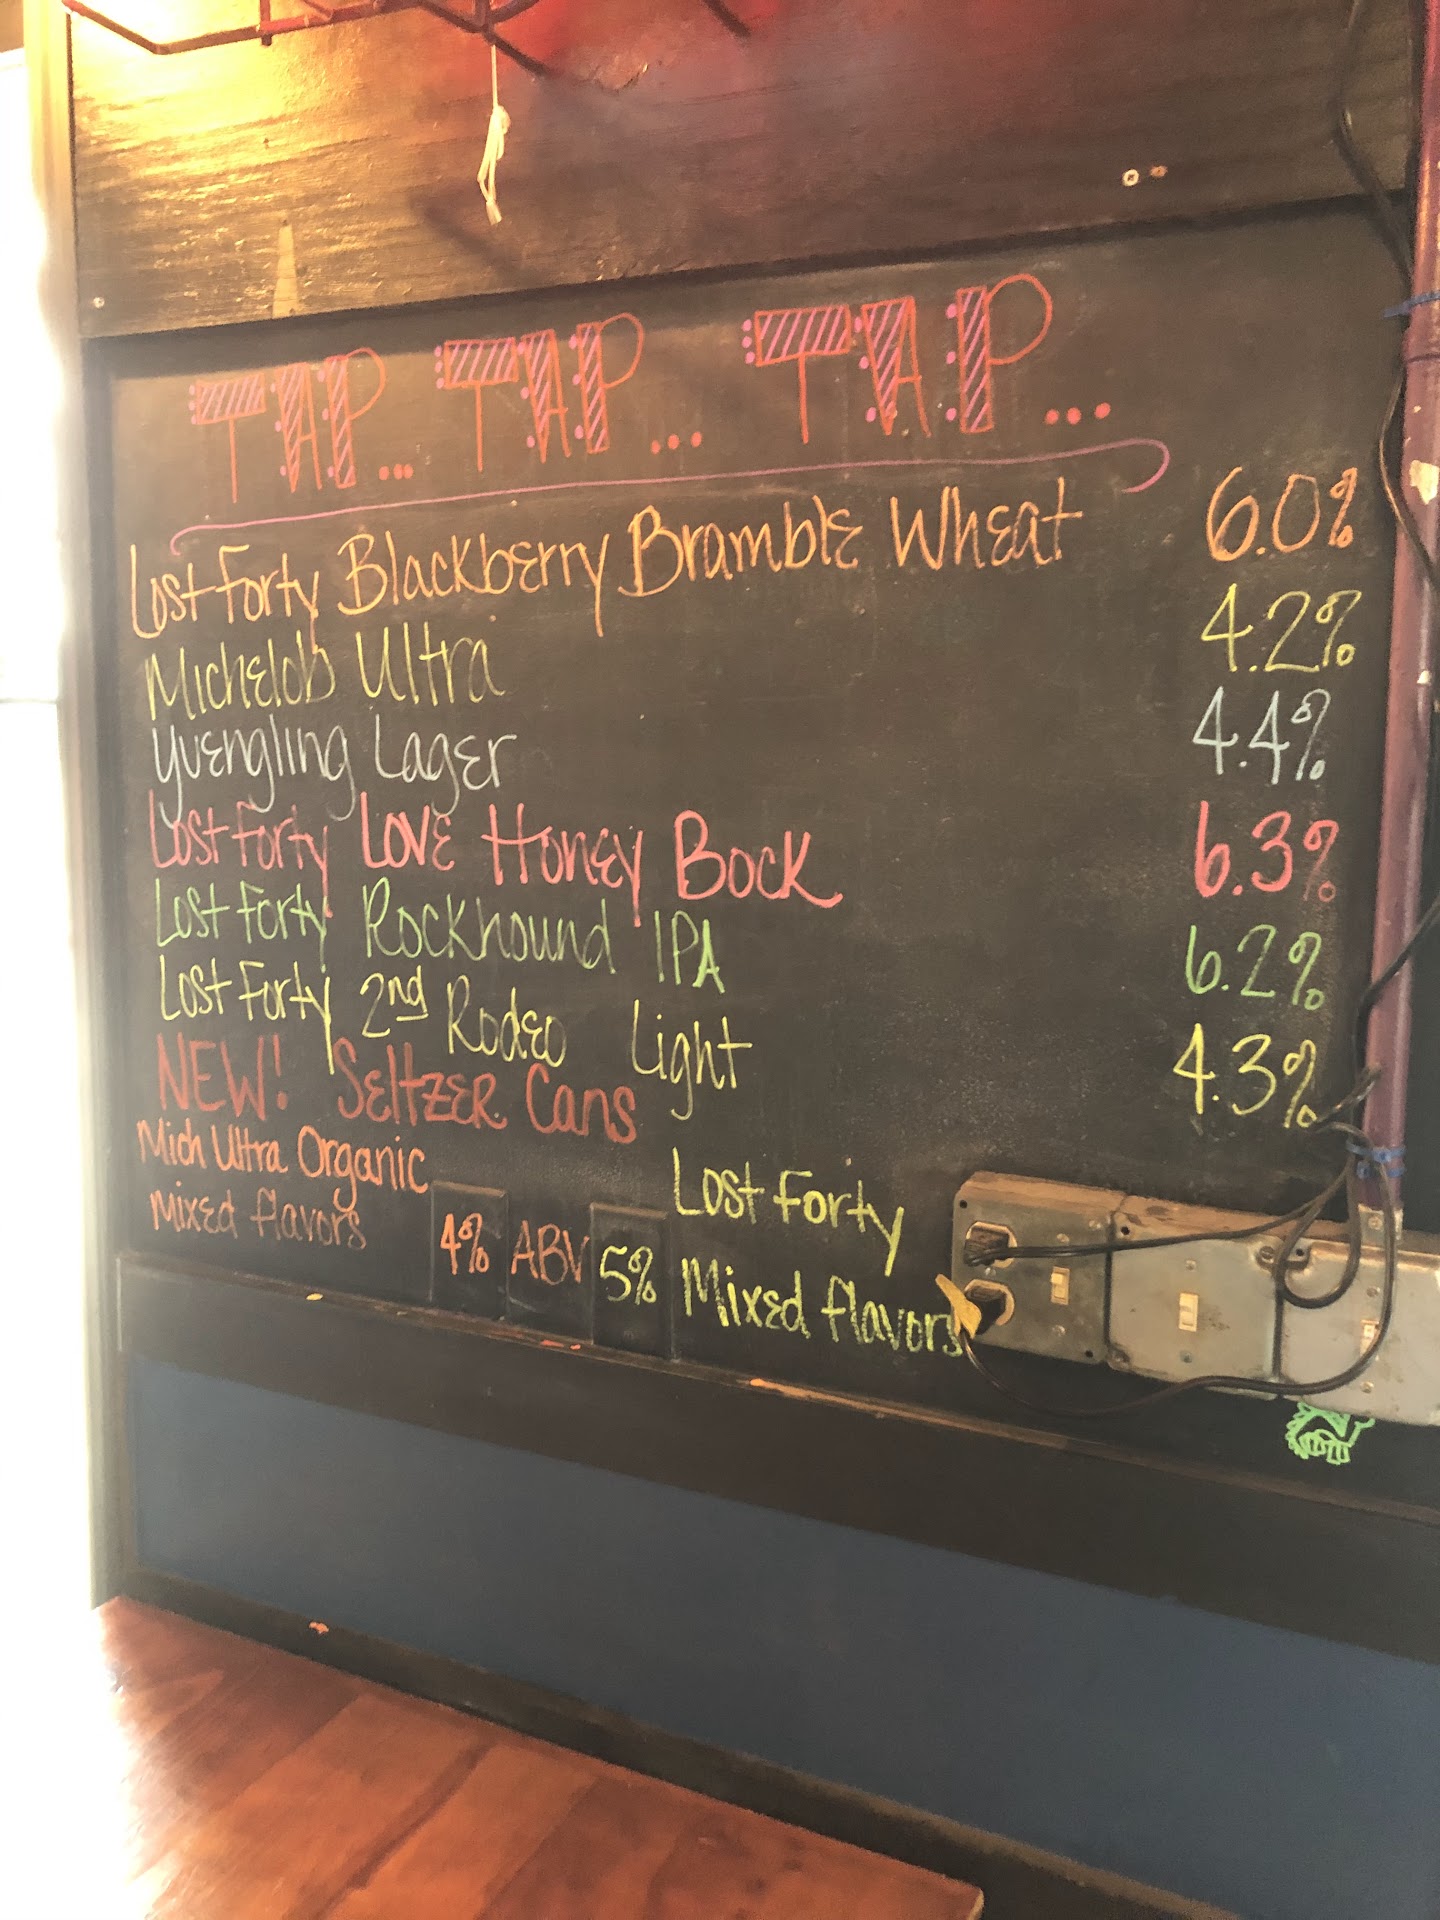 TAP... TAP... TAP...
Lost Forty Blackberry Bramble Wheat 6.0%
Michelob Ultra 4.2%
Yuengling Lager 4.4%
Lost Forty Love Honey Bock 6.3%
Lost Forty Rockhound IPA 6.2%
Lost Forty 2nd Rodeo Light 4.3%
NEW! Seltzer Cans
Mich Ultra Organic Lost Forty
Mixed flavors 4% ABV 5% Mixed flavors